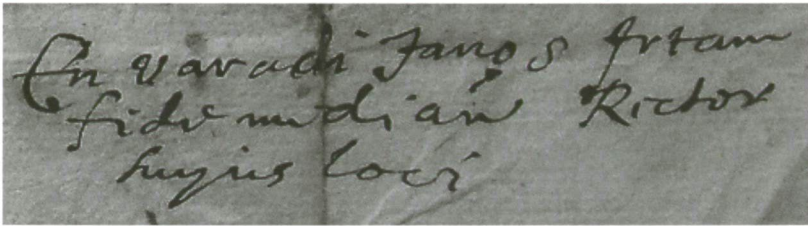 En varadi Janos Irtam
fide mediań Rector
hujus loci